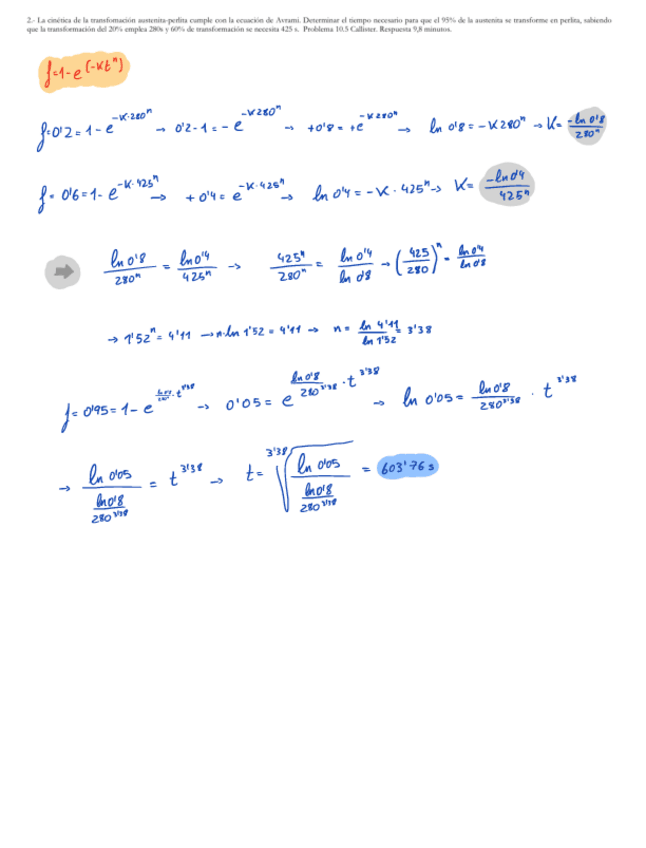 2.- La cinética de la transfomación austenita-perlita cumple con la ecuación de Avrami. Determinar el tiempo necesario para que el 95% de la austenita se transforme en perlita, sabiendo
que la transformación del 20% emplea 280s y 60% de transformación se necesita 425 s. Problema 10.5 Callister. Respuesta 9,8 minutos.
f=1-e^(-Kt^n)
f=0'2=1-e^(-K·280^n) → 0'2-1=-e^(-K280^n) → +0'8=+e^(-K280^n) → ln 0'8=-K280^n → K=-ln 0'8/280^n
f=0'6=1-e^(-K·425^n) → +0'4=e^(-K·425^n) → ln 0'4=-K·425^n → K=-ln 0'4/425^n
⇒ ln 0'8/280^n = ln 0'4/425^n → 425^n/280^n = ln 0'4/ln 0'8 → (425/280)^n = ln 0'4/ln 0'8
→ 1'52^n=4'11 → n·ln 1'52=4'11 → n=ln 4'11/ln 1'52=3'38
f=0'95=1-e^(ln 0'8/280^3'38·t^3'38) → 0'05=e^(ln 0'8/280^3'38·t^3'38) → ln 0'05=ln 0'8/280^3'38·t^3'38
→ ln 0'05/(ln 0'8/280^3'38)=t^3'38 → t=3'38√(ln 0'05/(ln 0'8/280^3'38))=603'76 s